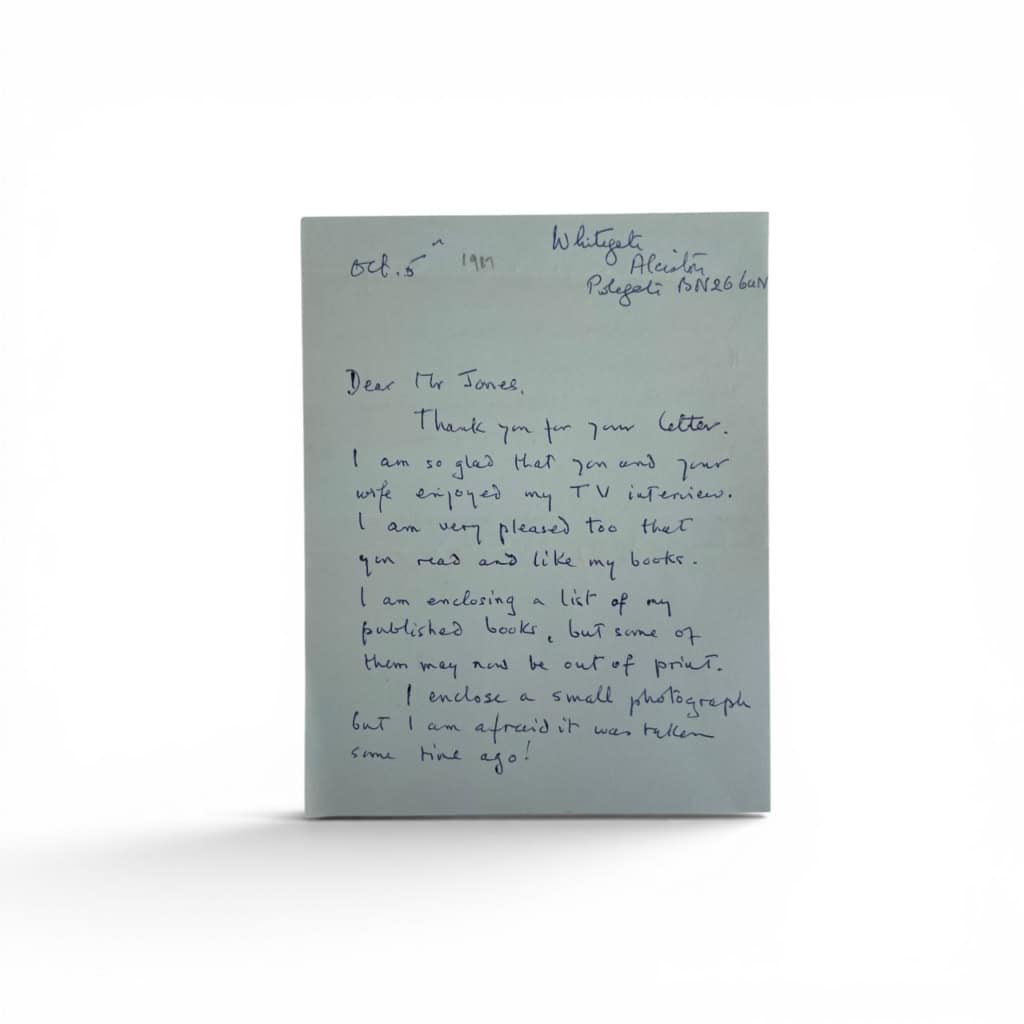 Oct. 5th
Whitegate
Alciston
Polegate BN26 6UN
Dear Mr Jones,
Thank you for your letter.
I am so glad that you and your
wife enjoyed my TV interview.
I am very pleased too that
you read and like my books.
I am enclosing a list of my
published books, but some of
them may now be out of print.
I enclose a small photograph
but I am afraid it was taken
some time ago!